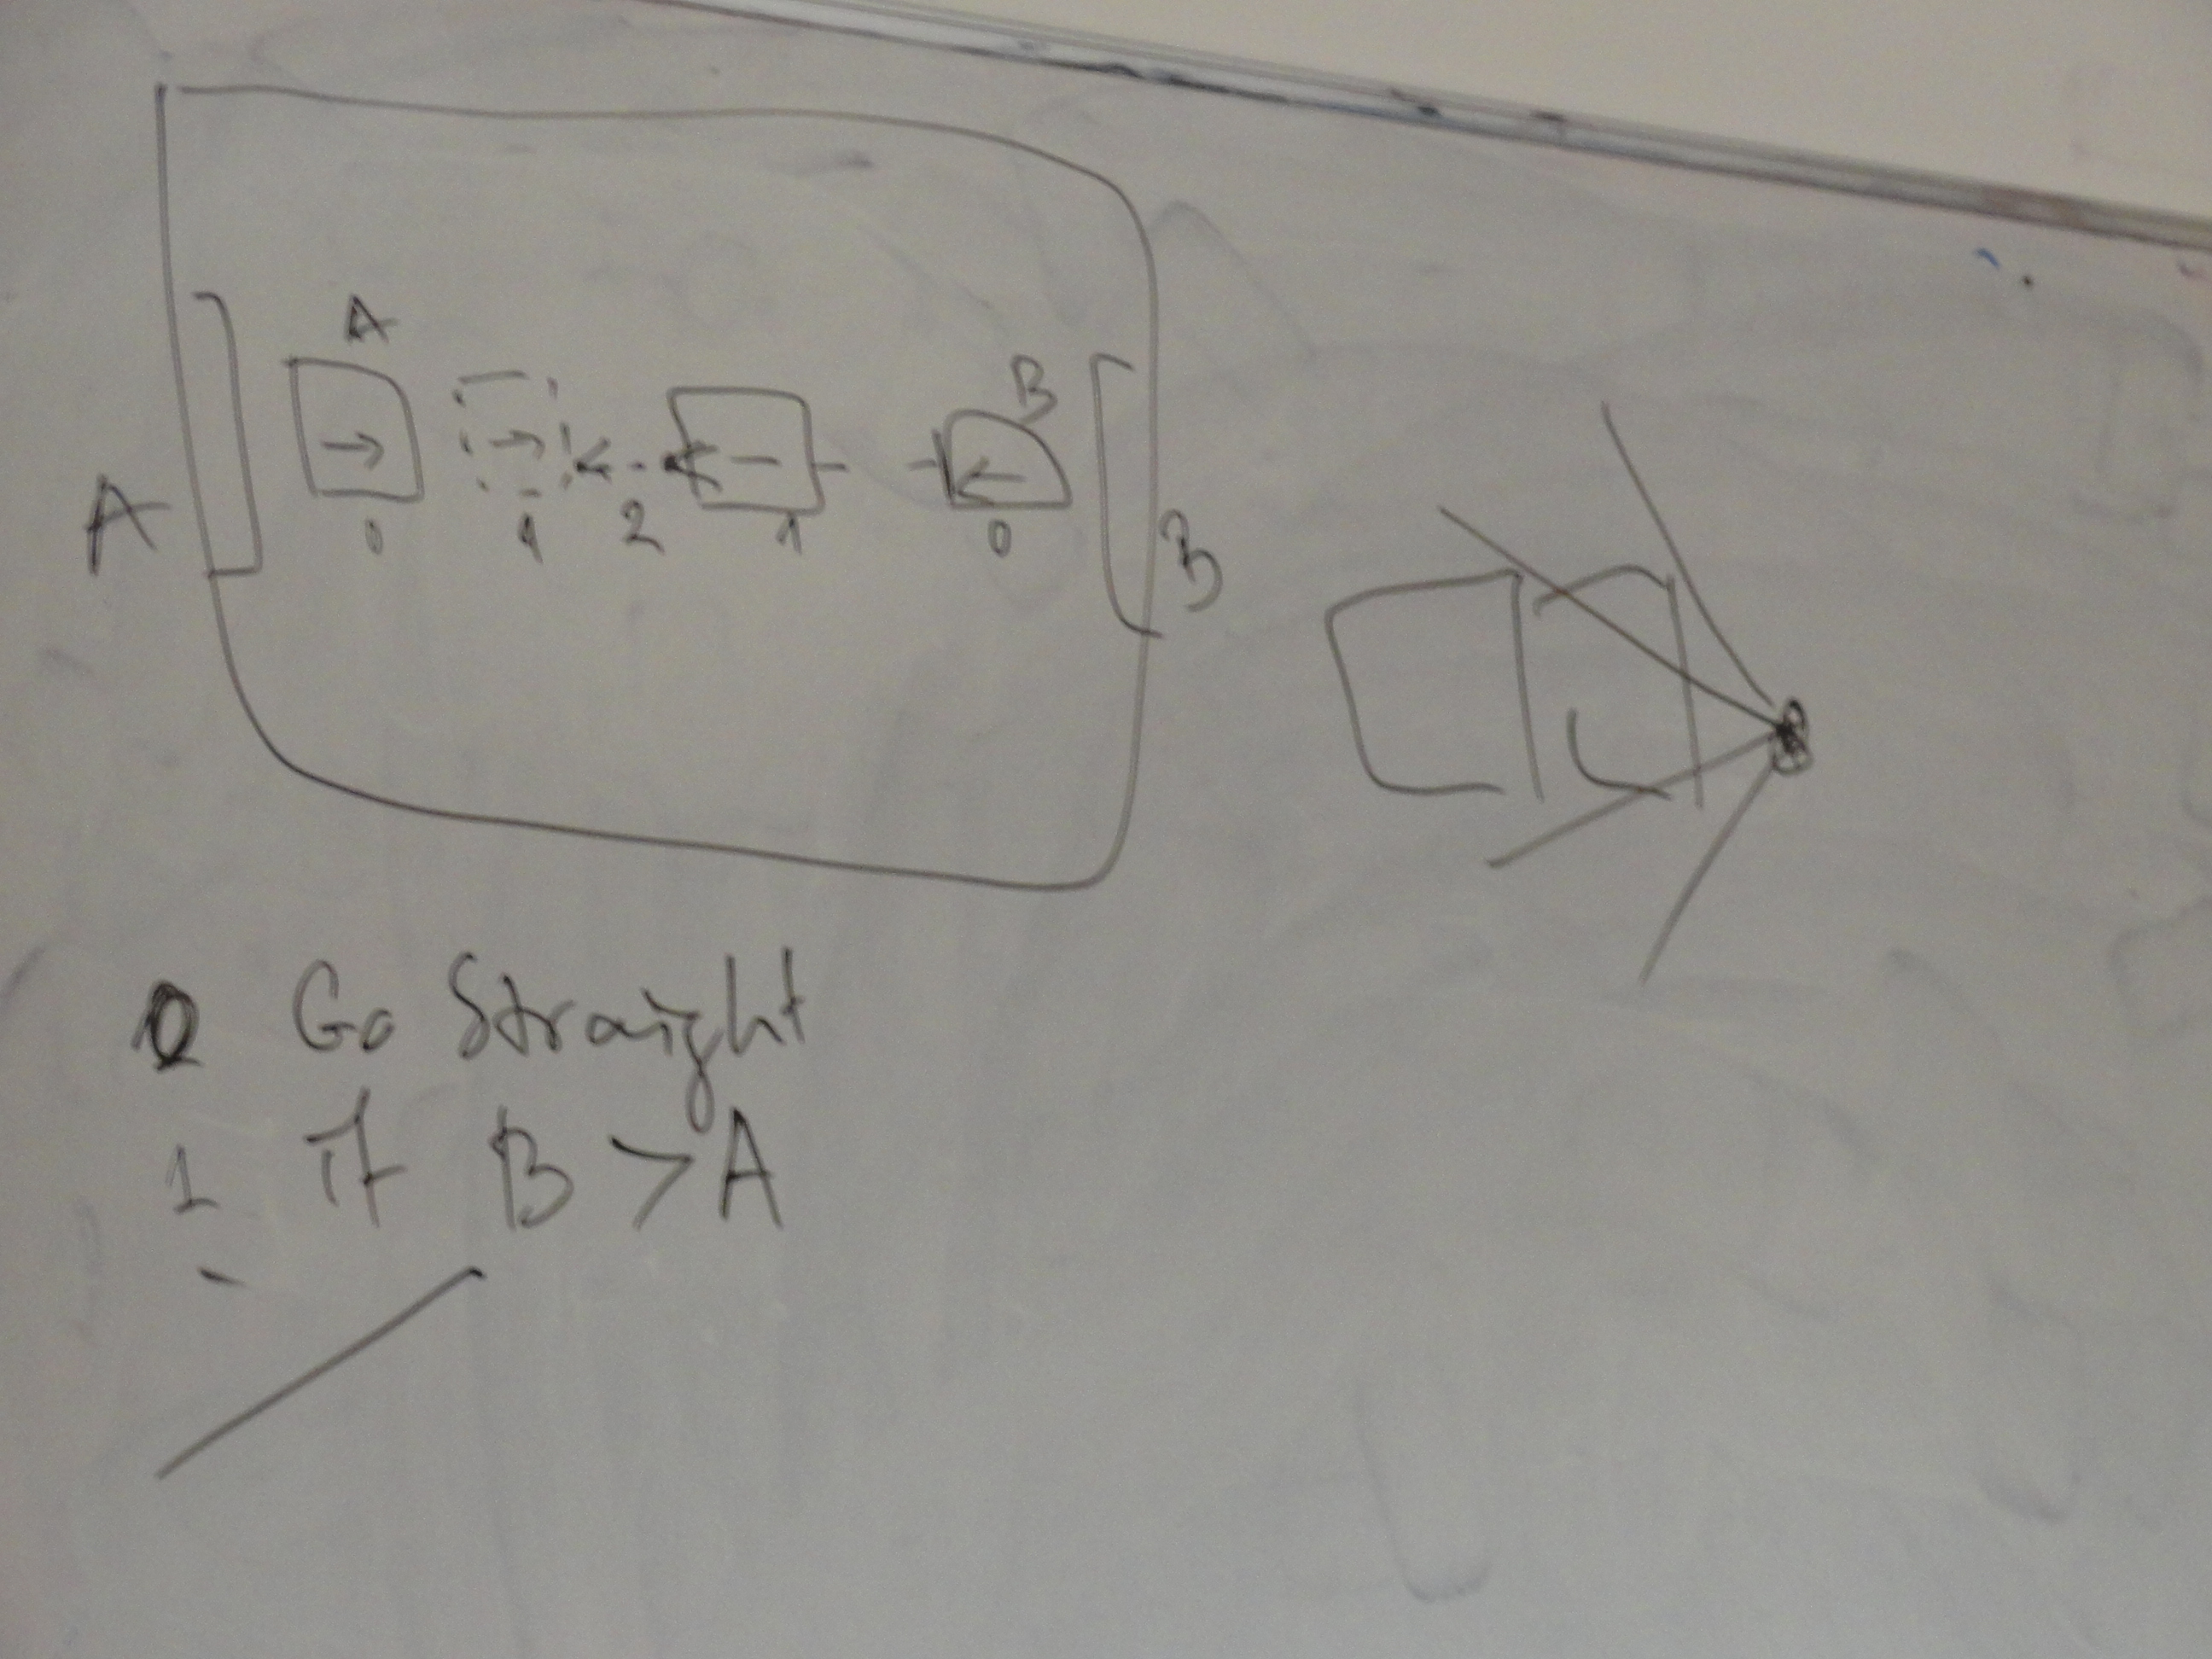 A
B
0 1 2 1 0
A
B
0 Go Straight
1 if B > A